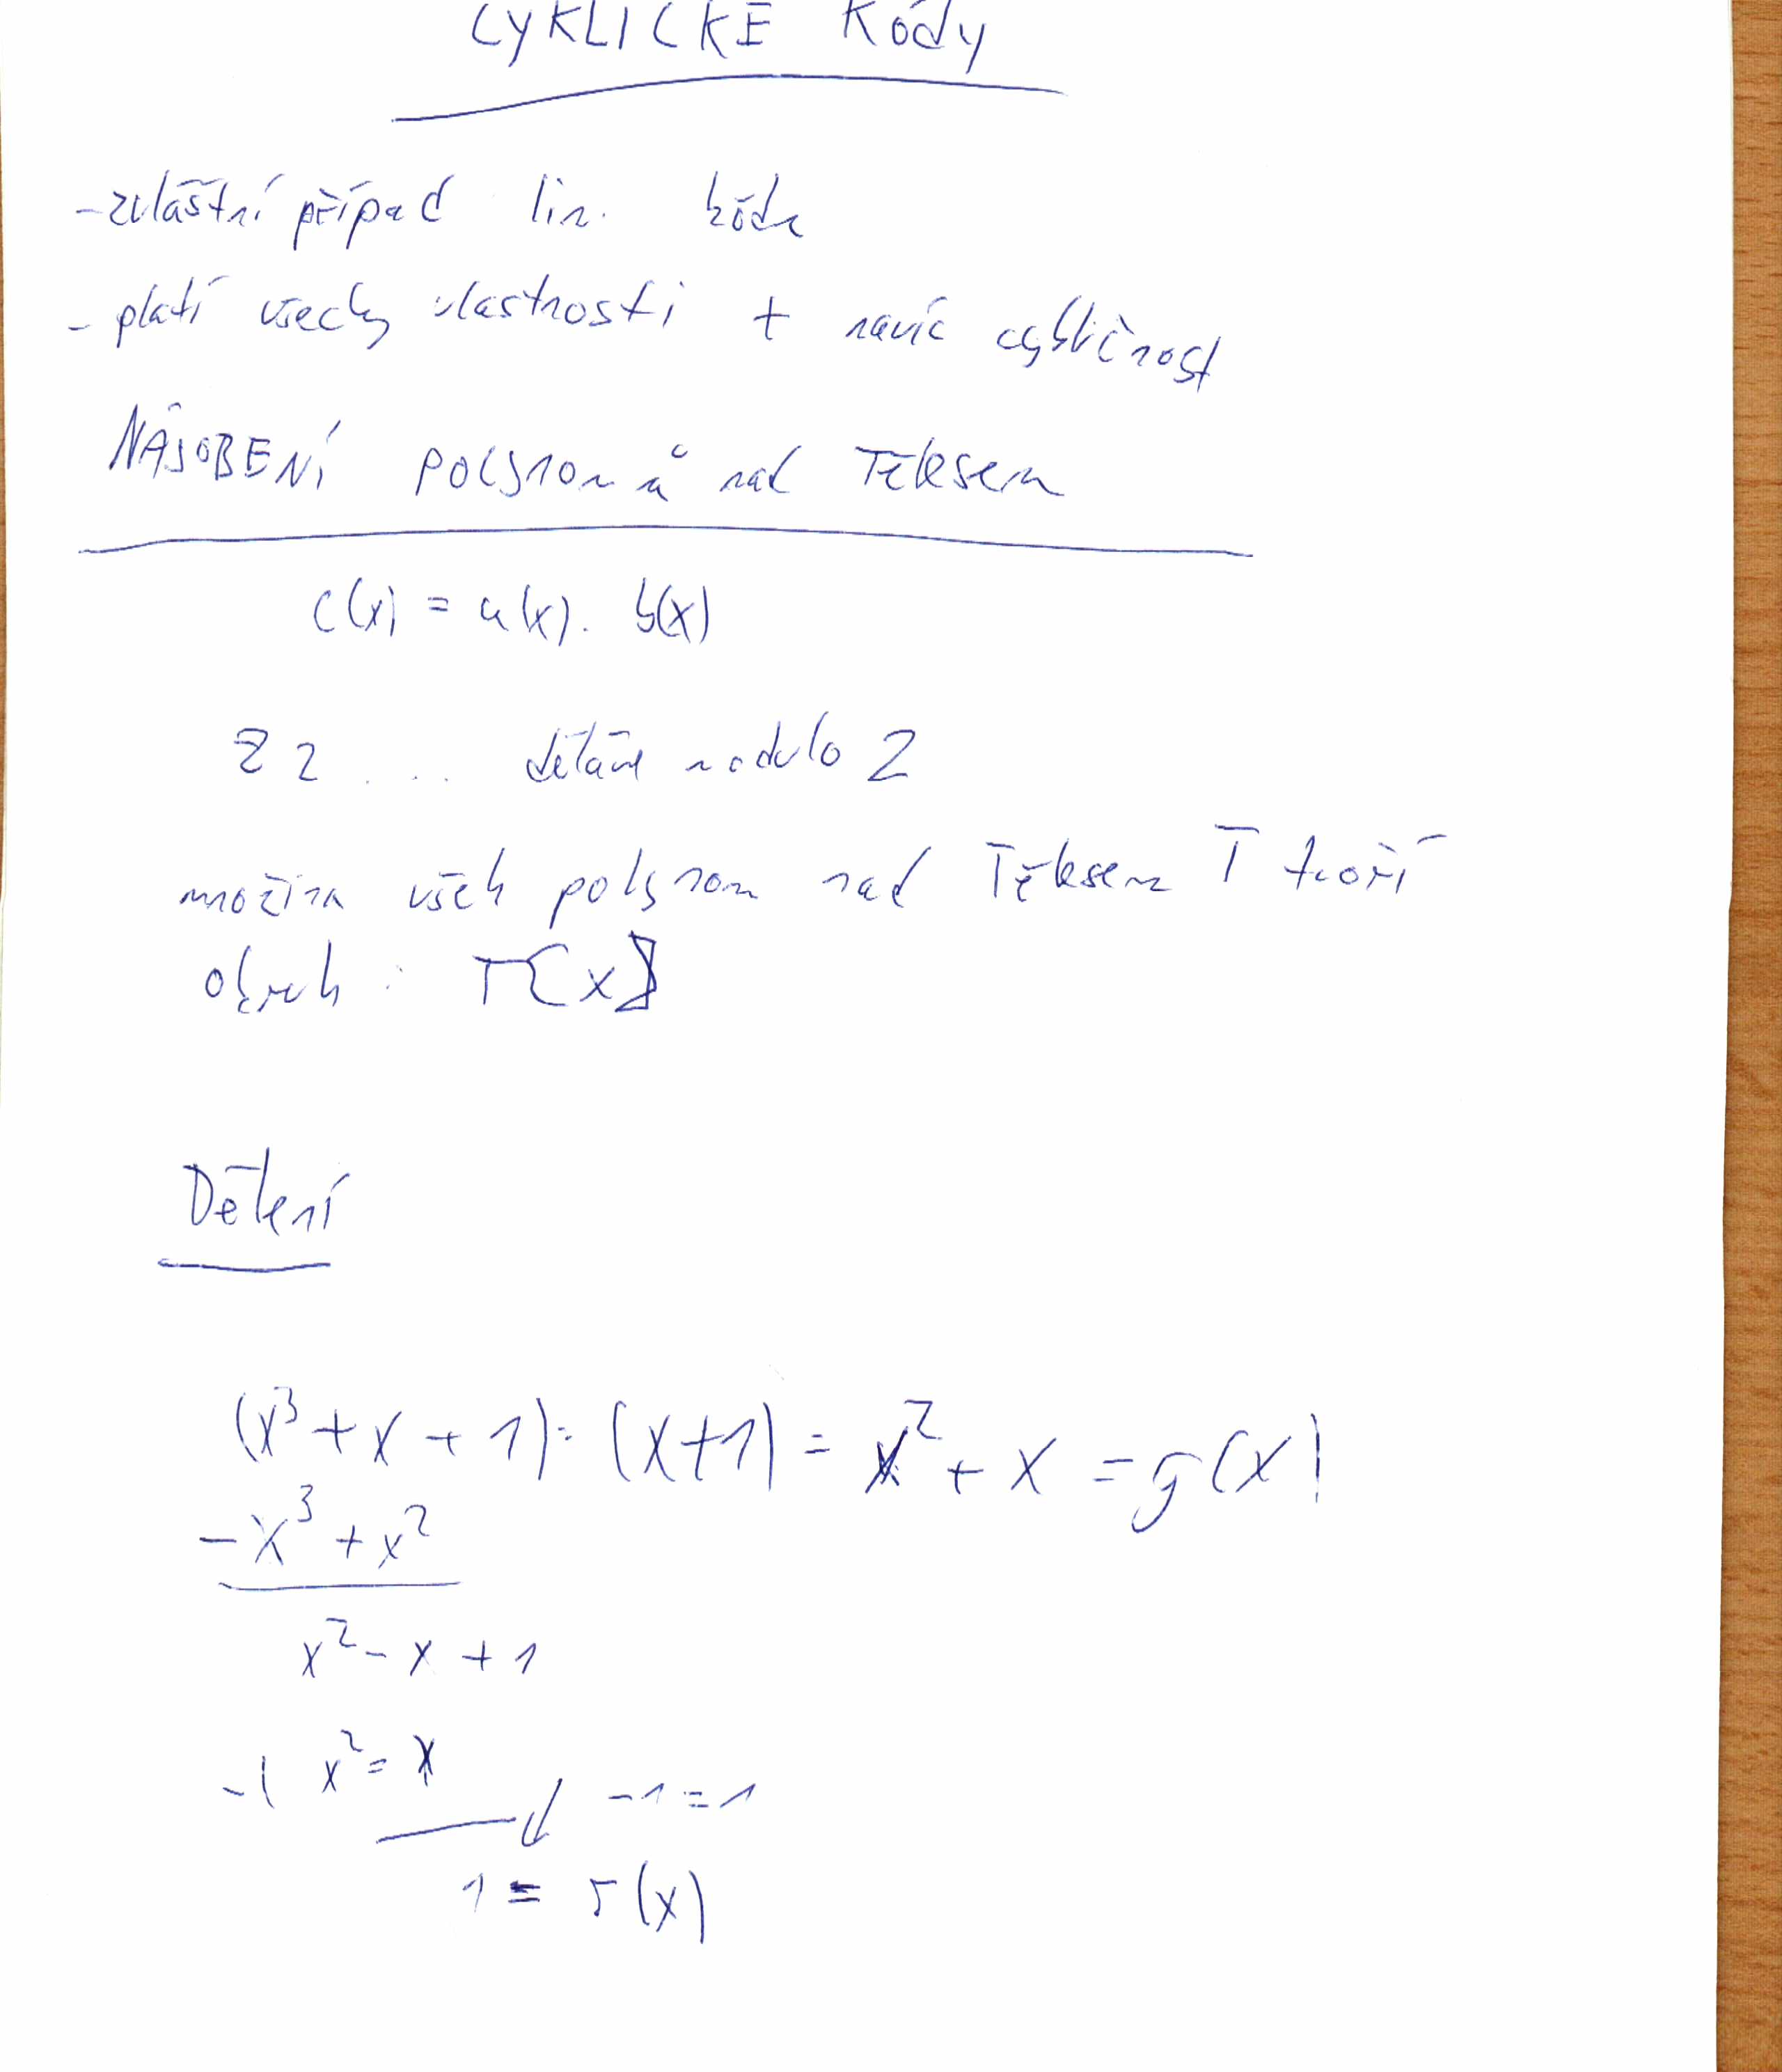 CYKLICKÉ KÓDY
- zvláštní případ lin. kódu
- platí všechy vlastnosti + navíc cykličnost
NÁSOBENÍ POLYNOMů nad Tělesem
c(x) = a(x). b(x)
Z2 .... sčítáme modulo 2
množina všech polynom nad Tělesem T tvoří
okruh : T[x]
Dělení
(x³ + x + 1) : (x+1) = x² + x = g(x)
- x³ + x²
x² - x + 1
-( x² = x
-1 = 1
1 = r(x)